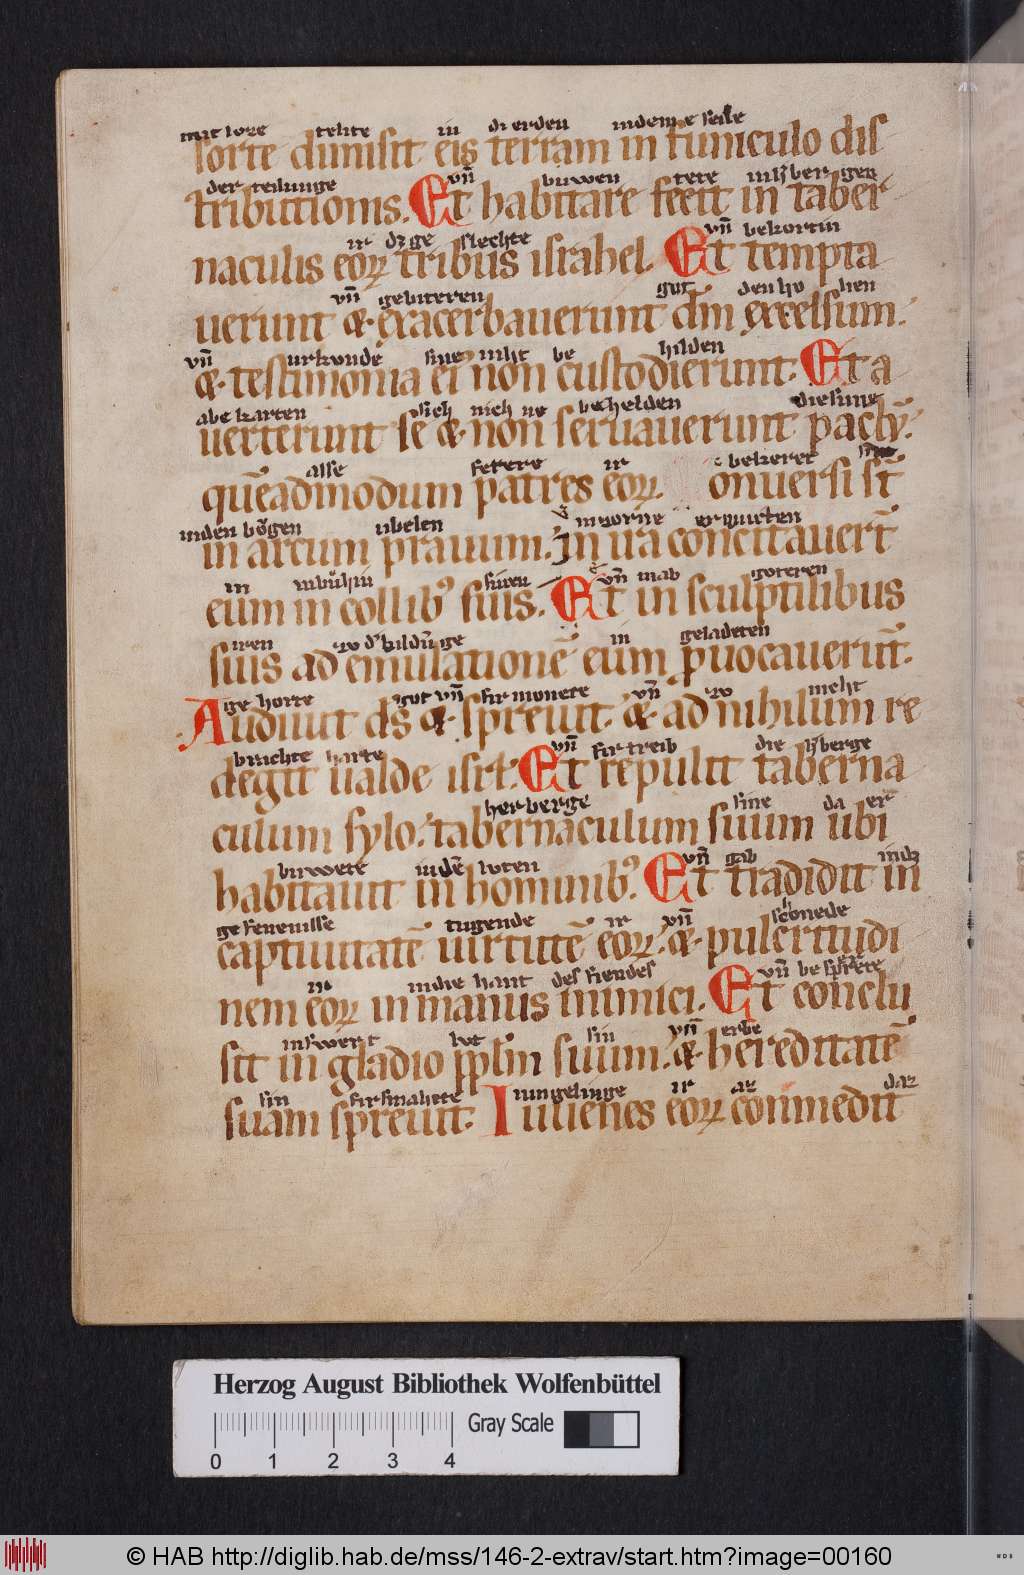 mit loze teilte in di erden indeme seile
sorte dimisit eis terram in funiculo dis
der teilunge vñ buwen tete in herbergen
tributionis. Et habitare fecit in taber
ir slechte vñ bekortin
naculis eoꝝ tribus israhel. Et tempta
vñ gebitteren got den ho hen
uerunt & exacerbauerunt dm̄ excelsum.
vñ urkunde sine niht be hilden
& testimonia ei' non custodierunt. Et a
abe karten sich nich ne behelden
uerterunt se & non seruauerunt pactū.
alse vetere ir bekeret
quēadmodum patres eoꝝ. onuersi st̄
inden bogen ubelen in zorne
in arcum prauum. In ira concitauert̄
in vñ goteren
eum in collib' suis. Et in sculptilibus
iren in geladeten
suis ad emulationē eum prouocauerūt.
ge horte got vñ vñ
Audiuit ds̄ & spreuit. & ad nihilum re
brachte harte vñ die
degit ualde isrl. Et repulit taberna
herberge sine da er
culum sylo. tabernaculum suum ubi
buwete inden luten vñ gab
habitauit in hominib'. Et tradidit in
tugende ir vñ schonede
captiuitatē uirtutē eoꝝ. & pulcritudi
ir in die hant des fiendes vñ
nem eoꝝ in manus inimici. Et conclu
in swert lut sin vñ erbe
sit in gladio ppl̄m suum. & hereditatē
sin iungelinge ir daz
suam spreuit. Iuuenes eoꝝ comedit
Herzog August Bibliothek Wolfenbüttel
Gray Scale
0 1 2 3 4
© HAB http://diglib.hab.de/mss/146-2-extrav/start.htm?image=00160